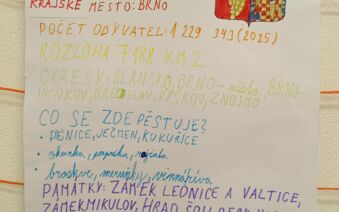 KRAJSKÉ MĚSTO: BRNO
POČET ODYVATEL: 1 229 343 (2025)
ROZLOHA: 7188 KM2
OKRESY: BLANSKO, BRNO-město, BRNO-
VENKOV, BŘECLAV, VYŠKOV, ZNOJMO
CO SE ZDE PĚSTUJE?
• PŠENICE, JEČMEN, KUKUŘICE
• okurka, paprika, rajčata
• broskve, meruňky, vinná réva
PAMÁTKY: ZÁMEK LEDNICE A VALTICE,
ZÁMEK MIKULOV, HRAD